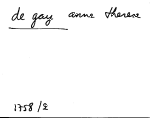 de gay anne therese
1758/2